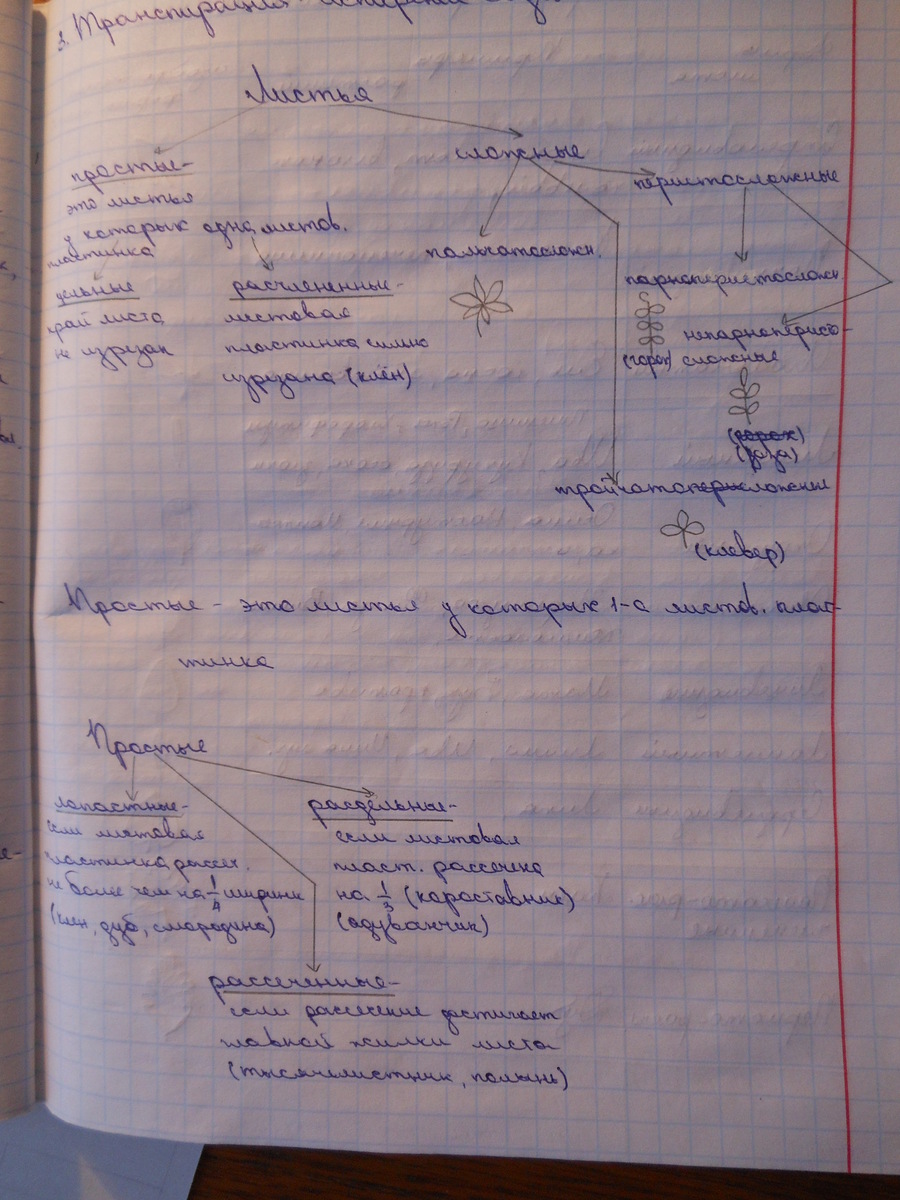 3. Транспирация -
Листья
простые-
это листья
у которых одна листов.
пластинка
цельные
край листа
не изрезан
расчлененные-
листовая
пластинка сильно
изрезана (клён)
сложные
пальчатосложн.
перистосложные
парноперистосложн.
(горох)
непарноперисто-
сложные
(горох)
(роза)
тройчатоперисложные
(клевер)
Простые - это листья у которых 1-а листов. плас-
тинка
Простые
лопастные-
если листовая
пластинка рассеч.
не более чем на 1/4 ширины
(клен, дуб, смородина)
раздельные-
если листовая
пласт. рассечена
на 1/3 (короставник)
(одуванчик)
рассеченные-
если рассечение достигает
главной жилки листа
(тысячелистник, полынь)